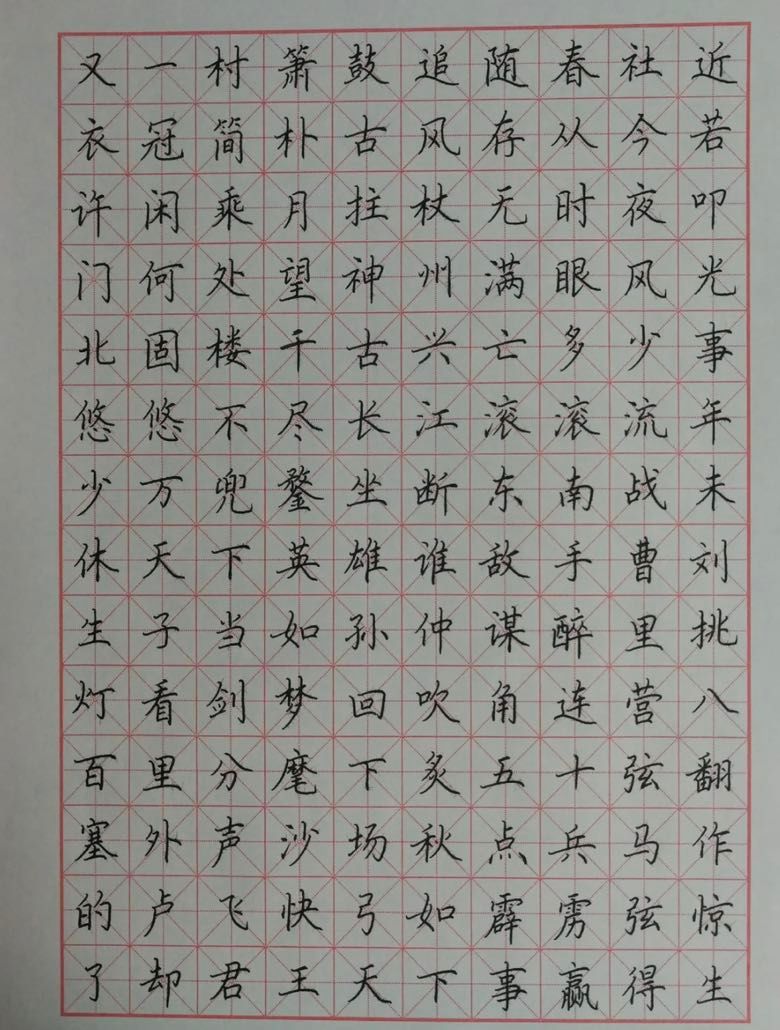 又一村箫鼓追随春社近
衣冠简朴古风存从今若
许闲乘月拄杖无时夜叩
门何处望神州满眼风光
北固楼千古兴亡多少事
悠悠不尽长江滚滚流年
少万兜鍪坐断东南战未
休天下英雄谁敌手曹刘
生子当如孙仲谋醉里挑
灯看剑梦回吹角连营八
百里分麾下炙五十弦翻
塞外声沙场秋点兵马作
的卢飞快弓如霹雳弦惊
了却君王天下事赢得生